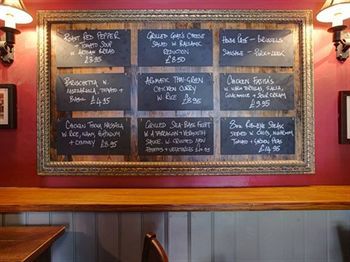 Roast Red Pepper
+ Tomato Soup
w Artisan Bread
£3.95
Grilled Goats Cheese
Salad w Balsamic
Reduction
£8.50
Sausage - Pork + Leek
Bruschetta w
Mozzarella, Tomato +
Basil
£4.95
Aromatic Thai Green
Chicken Curry
w Rice £8.95
Chicken Fajitas
w Tortillas, Salsa,
Guacamole + Sour Cream
£9.95
Chicken Tikka Massala
w Rice, Naan, Poppadom
+ Chutney £8.95
Grilled Sea Bass Fillet
w a Tarragon + Vermouth
Sauce w Crushed New
Potatoes + Vegetables £13.95
8oz Rib-Eye Steak
Served w Chips, Mushroom,
Tomato + Garden Peas
£14.95